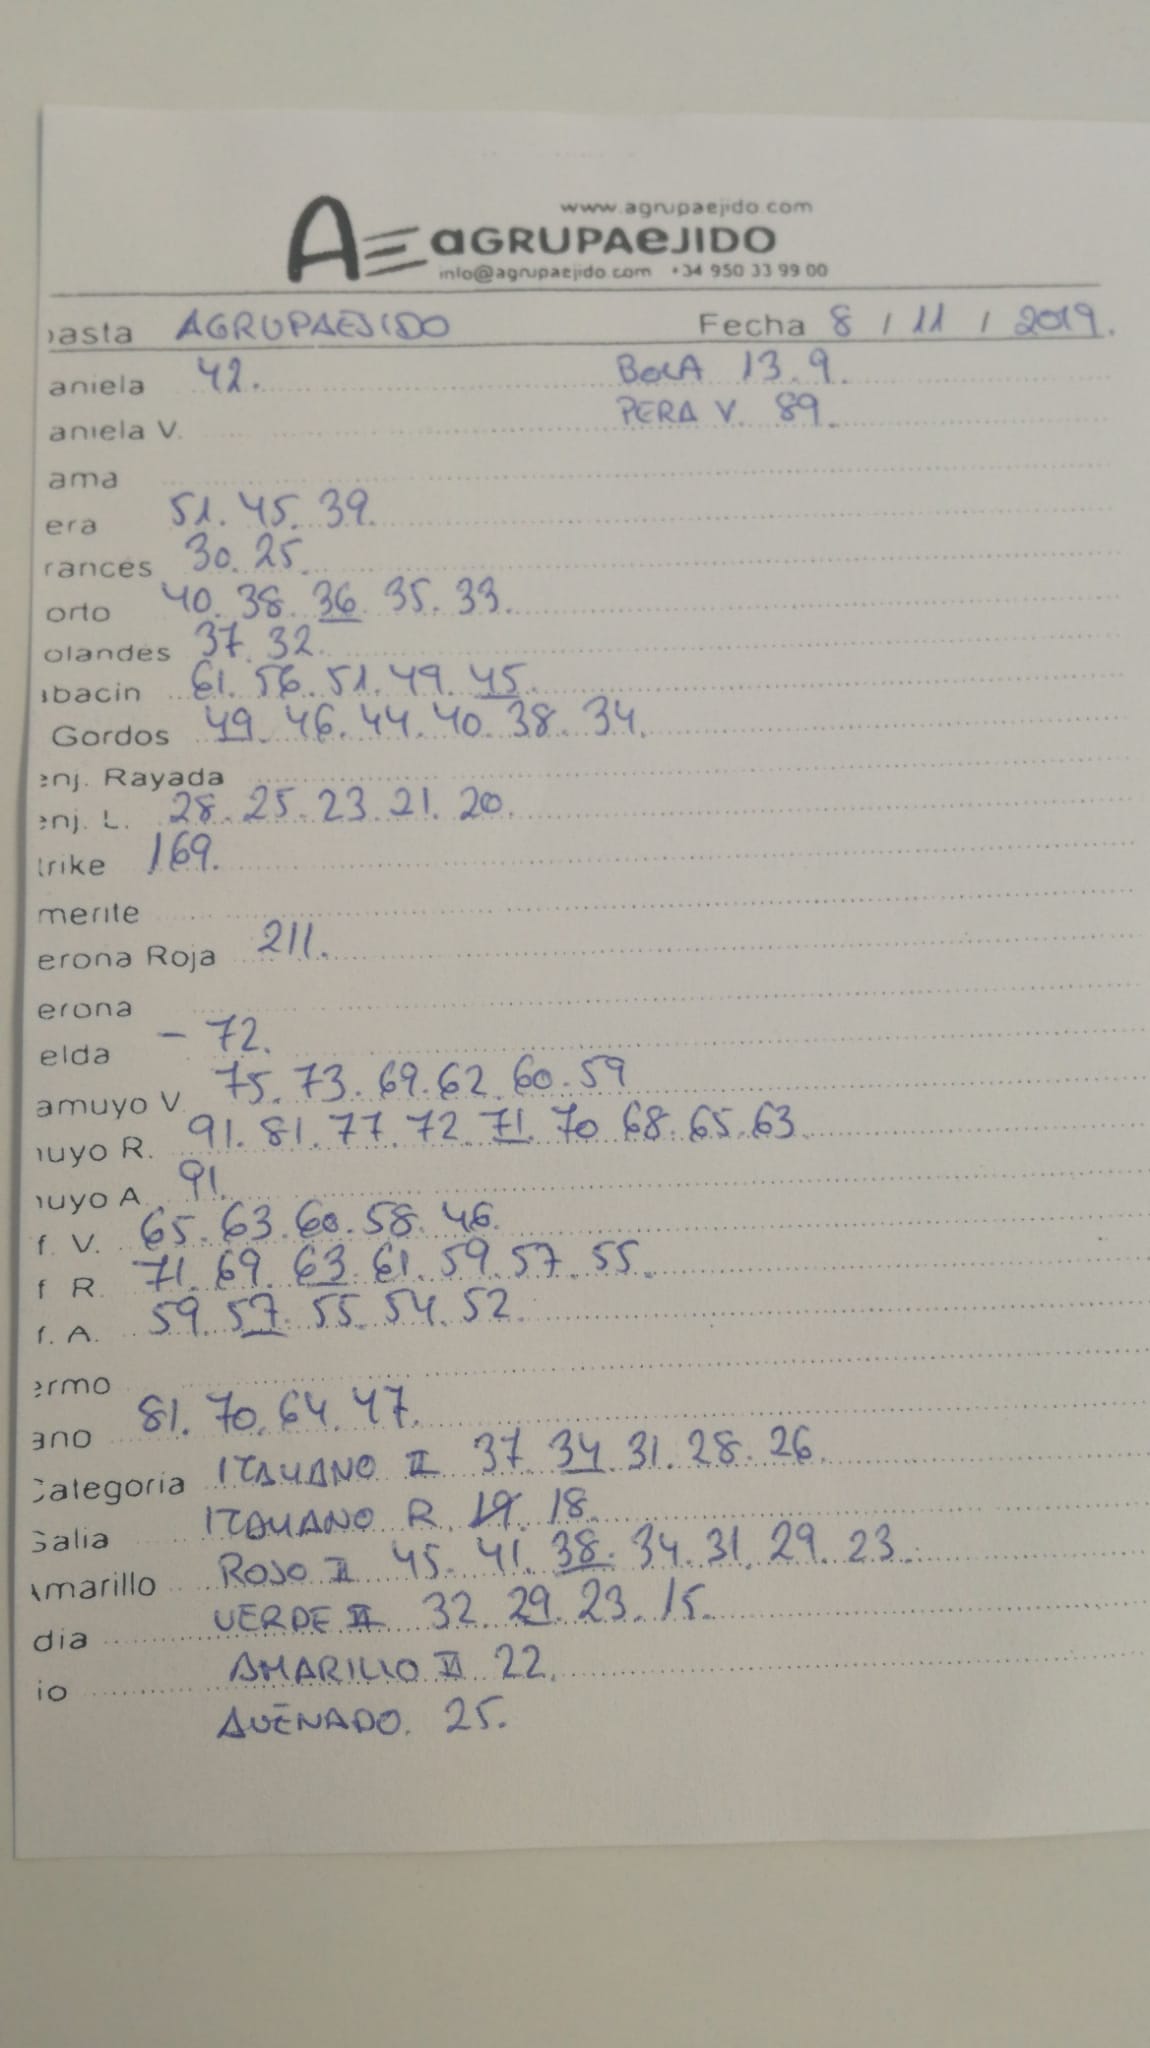 www.agrupaejido.com
AE aGRUPAeJIDO
info@agrupaejido.com +34 950 33 99 00
basta AGRUPAEJIDO Fecha 8 / 11 / 2019.
aniela 42. BOLA 13.9.
aniela V. PERA V. 89.
ama
era 51. 45. 39.
rances 30. 25.
orto 40. 38. 36. 35. 33.
olandés 37. 32.
abacin 61. 56. 51. 49. 45.
Gordos 49. 46. 44. 40. 38. 34.
enj. Rayada
enj. L. 28. 25. 23. 21. 20.
trike 169.
merite
erona Roja 211.
erona
elda - 72.
amuyo V. 75. 73. 69. 62. 60. 59
nuyo R. 91. 81. 77. 72. 71. 70 68. 65. 63.
nuyo A. 91.
f. V. 65. 63. 60. 58. 46.
f R. 71. 69. 63. 61. 59. 57. 55.
f. A. 59. 57. 55. 54. 52.
ermo
ano 81. 70. 64. 47.
Categoria ITALIANO II 37. 34. 31. 28. 26.
Galia ITALIANO R. 19. 18.
Amarillo ROJO II 45. 41. 38. 34. 31. 29. 23.
dia VERDE II 32. 29. 23. 15.
io AMARILLO II 22.
AVENADO. 25.